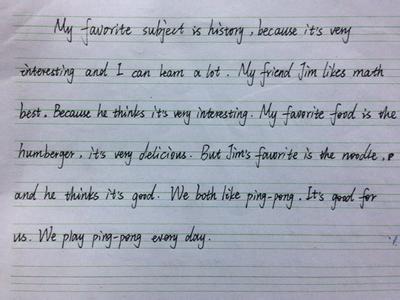 My favorite subject is history, because it's very
interesting and I can learn a lot. My friend Jim likes math
best. Because he thinks it's very interesting. My favorite food is the
humberger, it's very delicious. But Jim's favorite is the noodle,
and he thinks it's good. We both like ping-pong. It's good for
us. We play ping-pong every day.